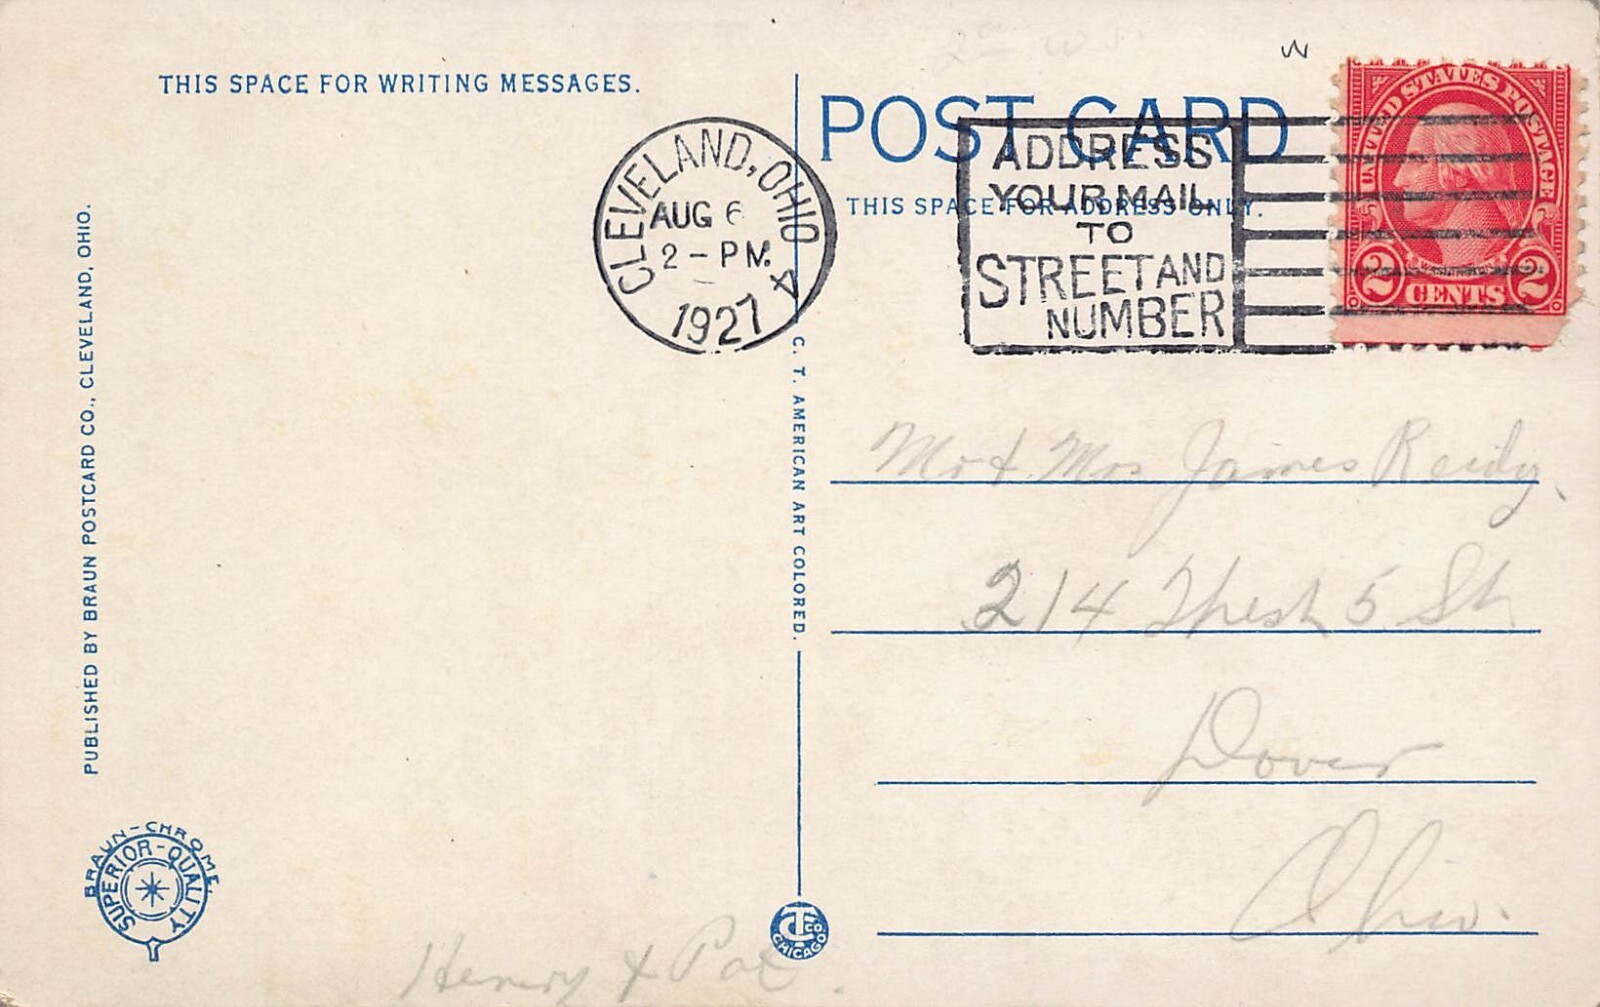 THIS SPACE FOR WRITING MESSAGES.
POST CARD
THIS SPACE FOR ADDRESS ONLY.
CLEVELAND, OHIO 4
AUG 6
2-PM.
1927
ADDRESS
YOUR MAIL
TO
STREET AND
NUMBER
UNITED STATES POSTAGE
2 CENTS 2
PUBLISHED BY BRAUN POSTCARD CO., CLEVELAND, OHIO.
C. T. AMERICAN ART COLORED.
Mr & Mrs James Reidy
214 5 St
Dover
Ohio.
BRAUN-CHROME
SUPERIOR-QUALITY
CT CO.
CHICAGO
Henry & Pat.